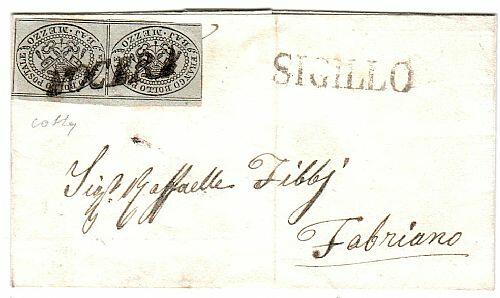 FRANCO BOLLO POSTALE MEZZO BAJ
FRANCO BOLLO POSTALE MEZZO BAJ
SIGILLO
Sigr Raffaelle Fibbj
Fabriano